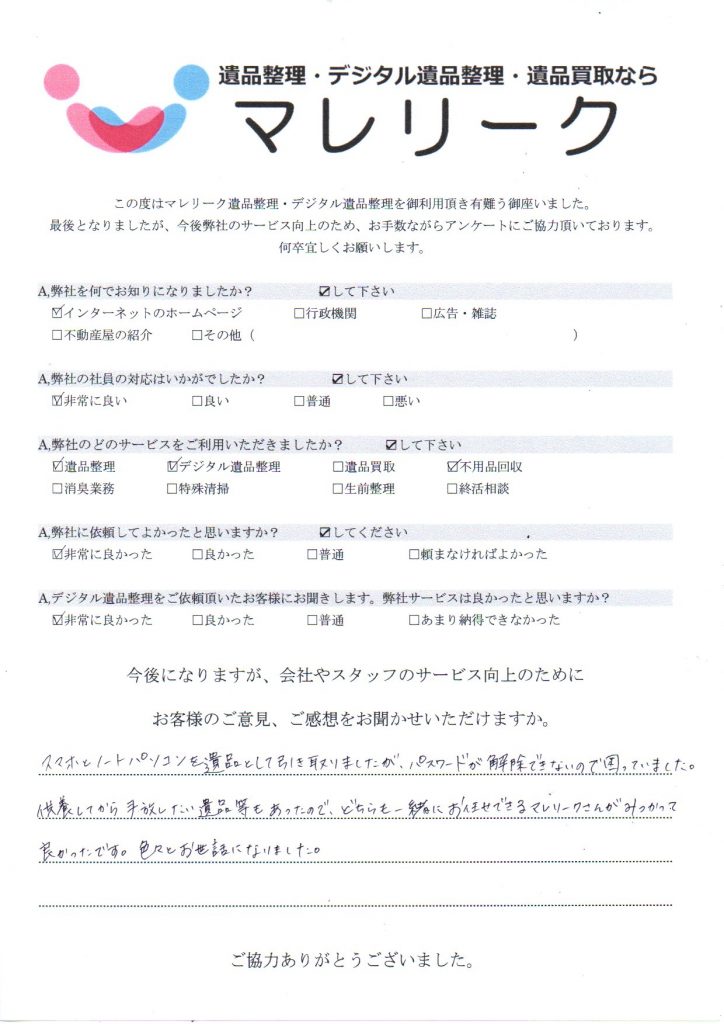 遺品整理・デジタル遺品整理・遺品買取なら
マレリーク
この度はマレリーク遺品整理・デジタル遺品整理を御利用頂き有難う御座いました。
最後となりましたが、今後弊社のサービス向上のため、お手数ながらアンケートにご協力頂いております。
何卒宜しくお願いします。
A,弊社を何でお知りになりましたか？ ☑して下さい
☑インターネットのホームページ □行政機関 □広告・雑誌
□不動産屋の紹介 □その他（ ）
A,弊社の社員の対応はいかがでしたか？ ☑して下さい
☑非常に良い □良い □普通 □悪い
A,弊社のどのサービスをご利用いただきましたか？ ☑して下さい
☑遺品整理 ☑デジタル遺品整理 □遺品買取 ☑不用品回収
□消臭業務 □特殊清掃 □生前整理 □終活相談
A,弊社に依頼してよかったと思いますか？ ☑してください
☑非常に良かった □良かった □普通 □頼まなければよかった
A,デジタル遺品整理をご依頼頂いたお客様にお聞きします。弊社サービスは良かったと思いますか？
☑非常に良かった □良かった □普通 □あまり納得できなかった
今後になりますが、会社やスタッフのサービス向上のために
お客様のご意見、ご感想をお聞かせいただけますか。
スマホとノートパソコンを遺品として引き取りましたが、パスワードが解除できないので困っていました。
供養してから手放したい遺品等もあったので、どちらも一緒にお任せできるマレリークさんがみつかって
良かったです。色々とお世話になりました。
ご協力ありがとうございました。